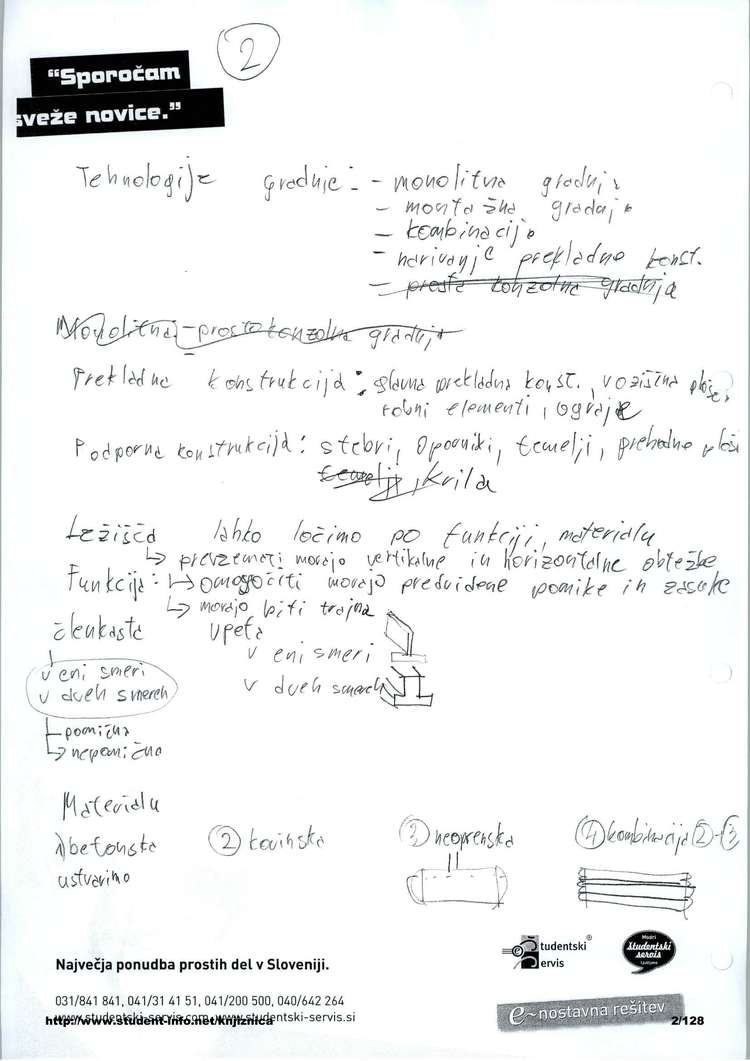 2
“Sporočam
sveže novice.”
Tehnologije gradnje: - monolitna gradnja
- montažna gradnja
- kombinacija
- narivanje prekladne konst.
- prosta konzolna gradnja
Monolitna - prosta konzolna gradnja
Prekladna konstrukcija: glavna prekladna konst., vozišćna
robni elementi, ograje
Podporna konstrukcija: stebri, oporniki, temelji, prehodne
temelji, krila
Ležišča lahko ločimo po funkciji, materialu
↳ prevzemati morajo vertikalne in horizontalne obtežbe
Funkcija: ↳ omogočiti morajo predvidene pomike in zasuke
↳ morajo biti trajna
členkasta vpeta
v eni smeri v eni smeri
v dveh smereh v dveh smereh
pomična
↳ nepomična
Materialu
1) betonska 2 kovinska 3 neoprenska 4 kombinacija 2-3
ustvarimo
Največja ponudba prostih del v Sloveniji.
Študentski®
Servis
Modri
Študentski
servis
Ljubljana
031/841 841, 041/31 41 51, 041/200 500, 040/642 264
e-nostavna rešitev
http://www.student-info.net/knjiznica
2/128